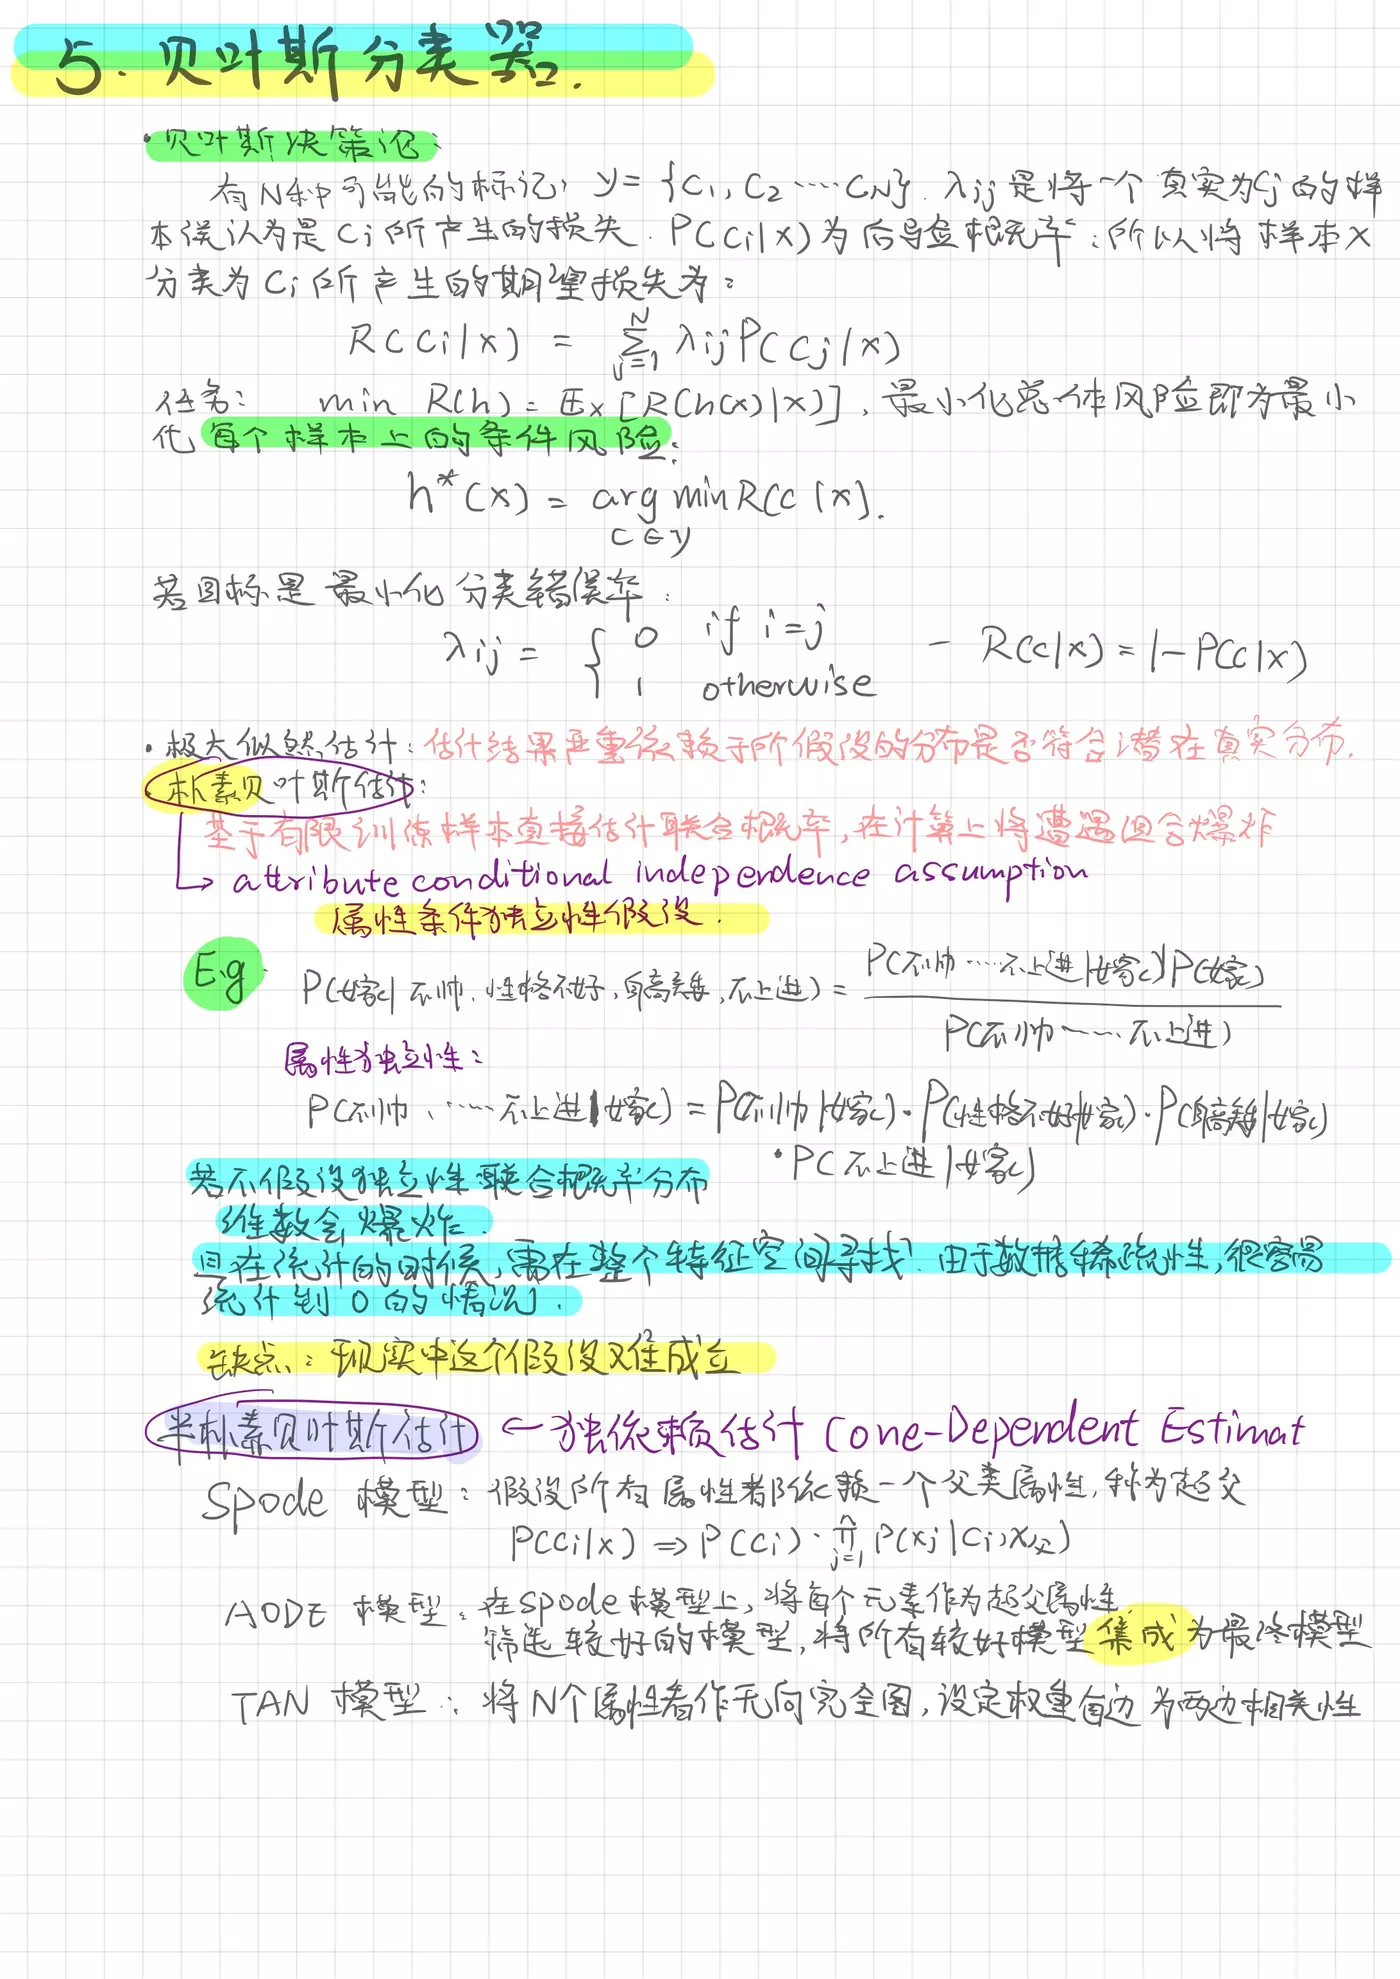 5. 贝叶斯分类器.
· 贝叶斯决策论:
有N种可能的标记, y = {C₁, C₂ ····· C_N}. λij 是将一个真实为Cj的样
本误认为是Ci所产生的损失. P(Ci|x)为后导盒概率; 所以将样本X
分类为Ci所产生的期望损失为:
R(Ci|x) = Σ_{j=1}^{N} λij P(Cj|x)
任务: min R(h) = Ex[R(h(x)|x)], 最小化总体风险即为最小
化每个样本上的条件风险:
h*(x) = arg min R(c|x).
c∈y
若目标是最小化分类错误率:
λij = { 0 if i=j — R(c|x) = 1-P(c|x)
1 otherwise
· 极大似然估计: 估计结果严重依赖于所假设的分布是否符合潜在真实分布.
朴素贝叶斯估计:
基于有限训练样本直接估计联合概率, 在计算上将遭遇组合爆炸
↳ attribute conditional independence assumption
属性条件独立性假设.
E.g P(嫁|不帅, 性格不好, 身高矮, 不上进) = P(不帅·····不上进|嫁)P(嫁)
P(不帅·····不上进)
属性独立性:
P(不帅, ·····不上进|嫁) = P(不帅|嫁)·P(性格不好|嫁)·P(身高矮|嫁)
·P(不上进|嫁)
若不假设独立性联合概率分布
维数会爆炸.
且在统计的时候, 需在整个特征空间寻找. 由于数据稀疏性, 很容易
统计到0的情况.
缺点: 现实中这个假设难成立
半朴素贝叶斯估计 ← 独依赖估计 (one-Dependent Estimat
Spode 模型: 假设所有属性都依赖一个父类属性, 称为超父
P(Ci|x) ⇒ P(Ci)·∏_{j=1}^{n} P(xj|Ci,X父)
AODE 模型: 在spode模型上, 将每个元素作为超父属性
筛选较好的模型, 将所有较好模型集成为最终模型
TAN 模型: 将N个属性看作无向完全图, 设定权重每边为两边相关性